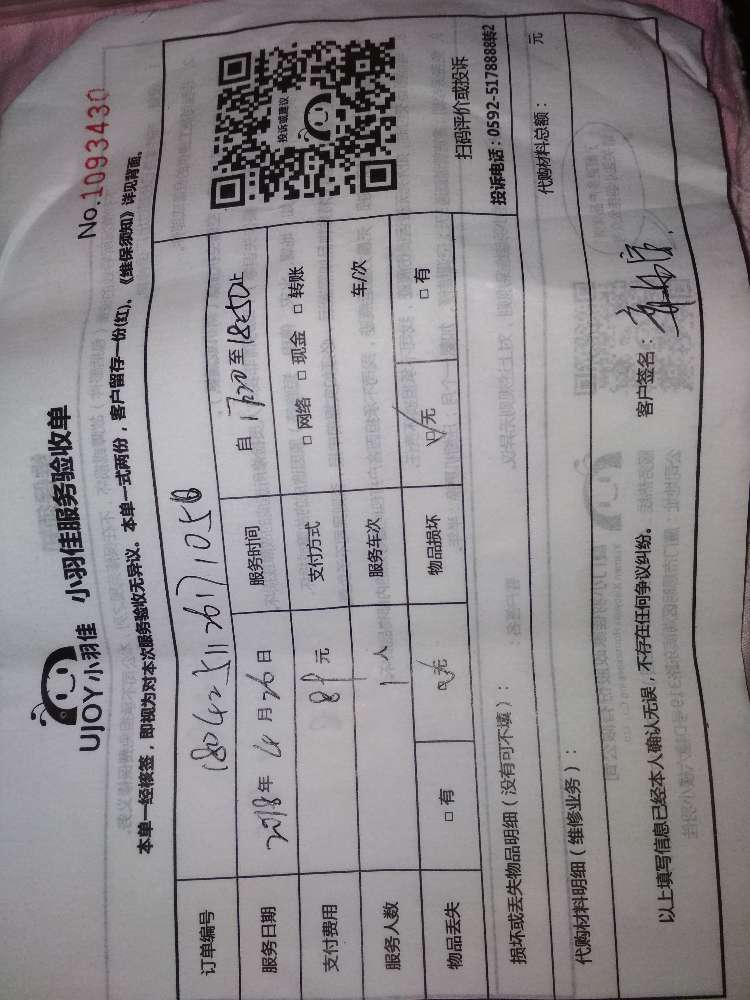 UJOY小羽佳 小羽佳服务验收单
No.1093430
本单一经核签，即视为对本次服务验收无异议。本单一式两份，客户留存一份(红)。《维保须知》详见背面。
订单编号
服务日期 2018年4月26日 服务时间 自17:20至18:50止
支付费用 元 支付方式 □网络 □现金 □转账
服务人数 1人 服务车次 车/次
物品丢失 □有 无 物品损坏 无 □有
投诉或建议
扫码评价或投诉
投诉电话：0592-5178888转2
损坏或丢失物品明细（没有可不填）：
代购材料明细（维修业务）： 代购材料总额： 元
以上填写信息已经本人确认无误，不存在任何争议纠纷。 客户签名：